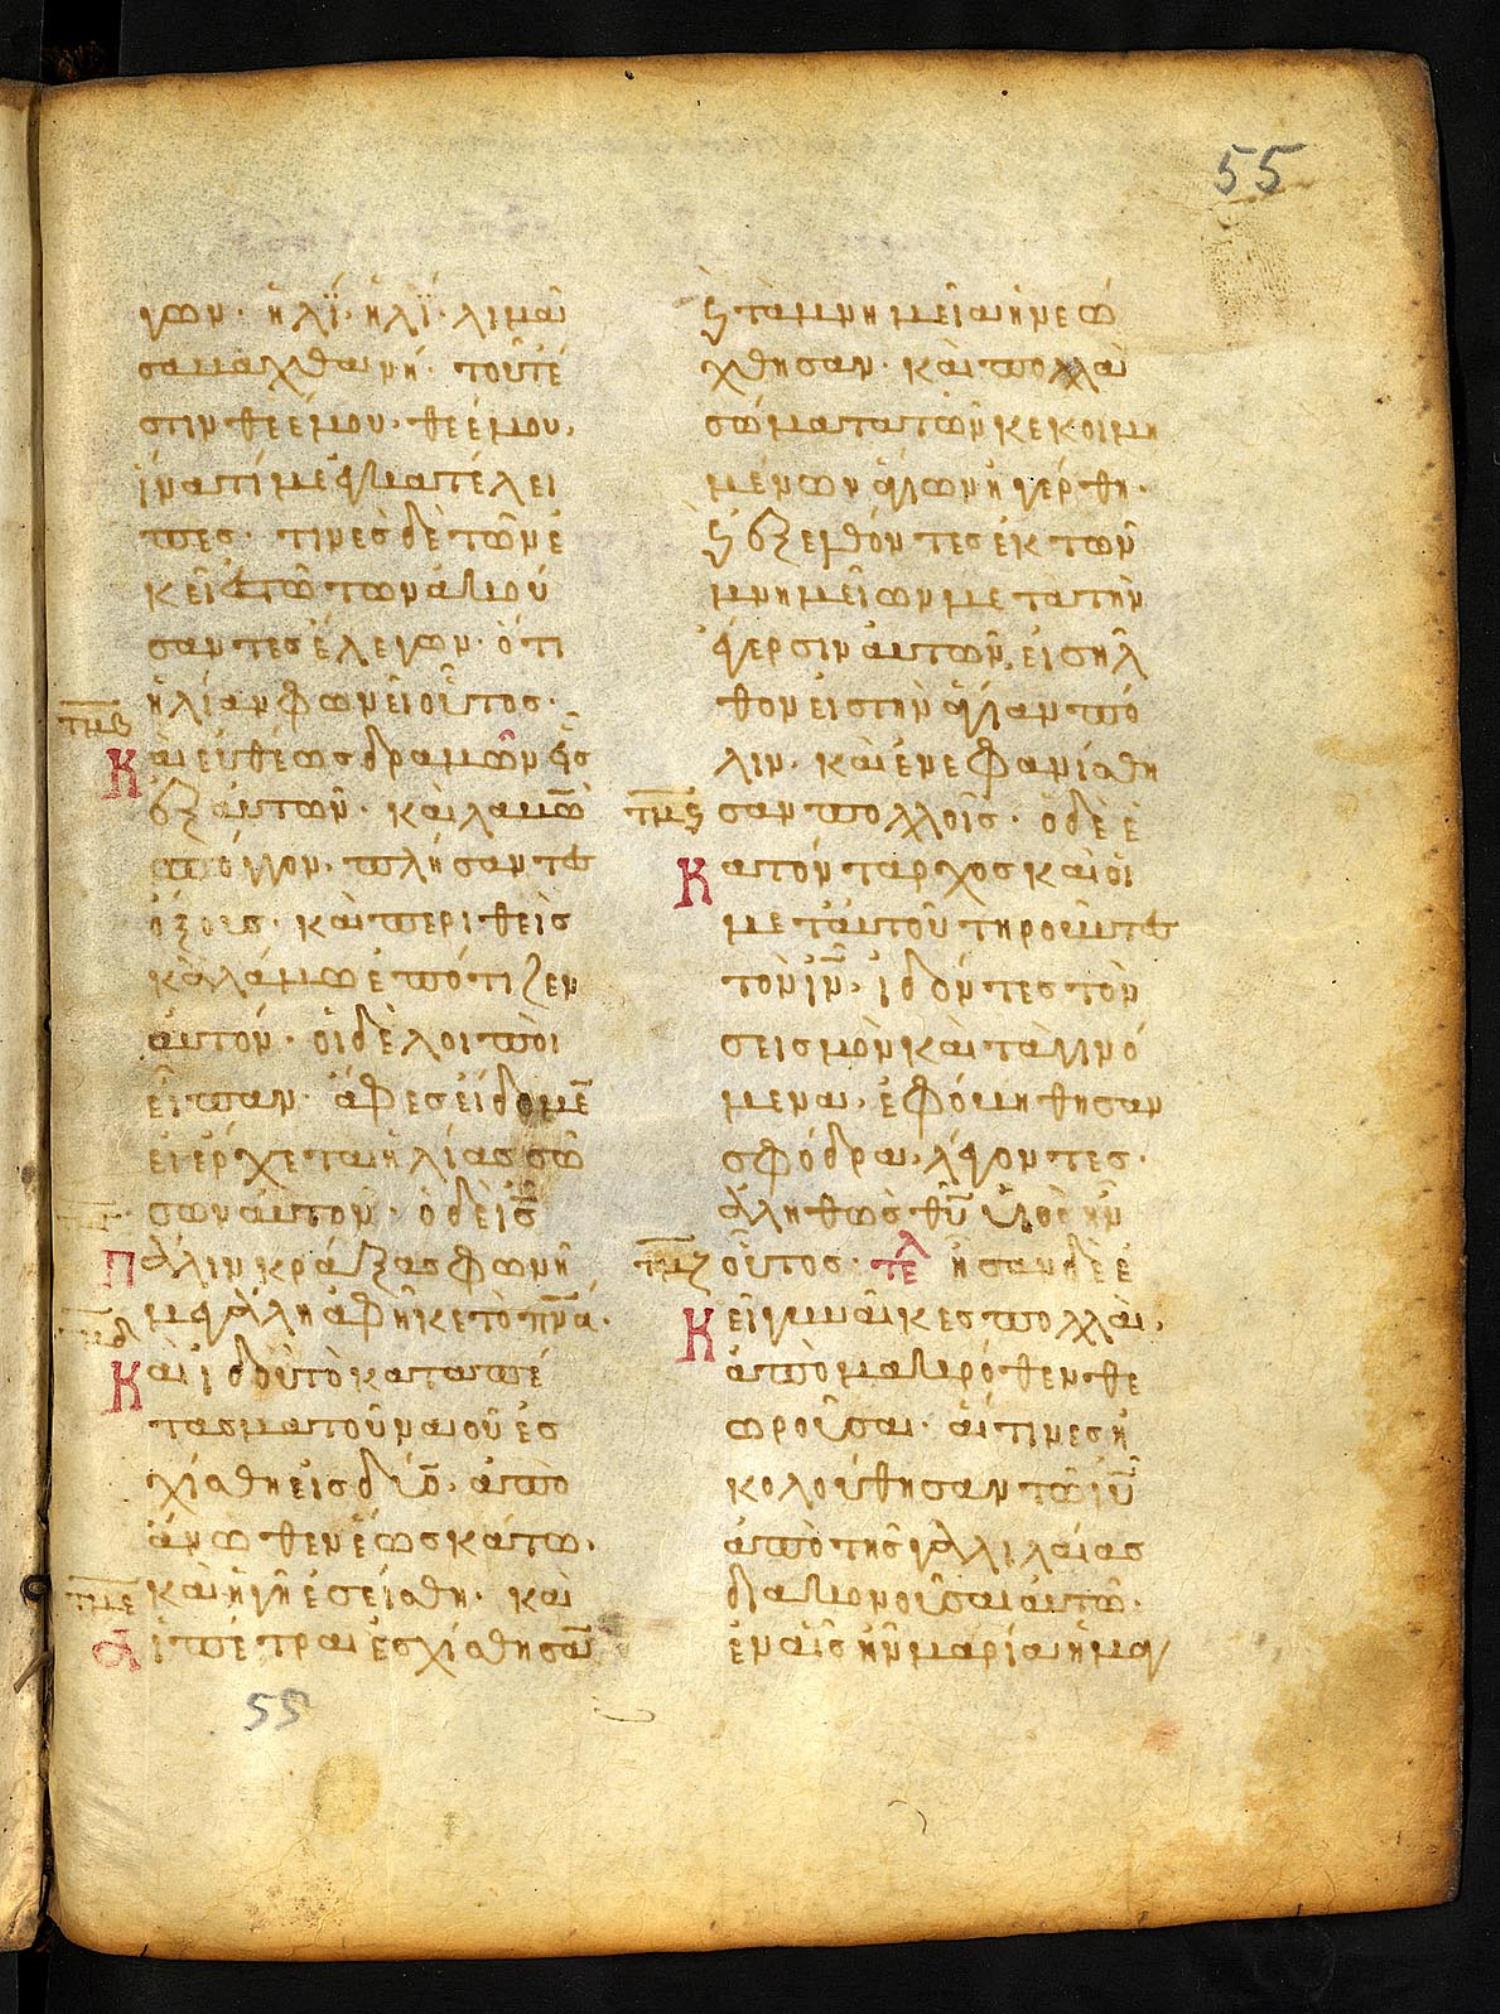 55
γων· ἠλΐ· ἠλΐ· λιμὰ
σαβαχθανή· τοῦτέ
στιν θεέ μου· θεέ μου,
ἱνατί με ἐγκατέλει
πες· τινὲς δὲ τῶν ἐ
κεῖ ἑστώτων ἀκού
σαντες ἔλεγον· ὅτι
ἠλίαν φωνεῖ οὗτος·
τμβ
Και εὐθέως δραμῶν εἷς
ἐξ αὐτῶν· καὶ λαβὼ
σπόγγον· πλήσας τε
ὄξους· καὶ περιθεὶς
καλάμω ἐπότιζεν
αὐτόν· οἱ δὲ λοιποὶ
εἶπαν· ἄφες εἴδομε
εἰ ἔρχεται ἠλίας σώ
σων αὐτόν· ὁ δὲ ις
Πάλιν κράξας φωνῆ
μεγάλη ἀφῆκε τὸ πνα·
τμδ
Και ἰδοὺ τὸ καταπέ
τασμα τοῦ ναοῦ ἐσ
χίσθη εἰς δύο· ἀπὸ
ἄνωθεν ἕως κάτω·
τμε
καὶ ἡ γῆ ἐσείσθη· καὶ
αἱ πέτραι ἐσχίσθησα
55
ϛ τὰ μνημεῖα ἠνεώ
χθησαν· καὶ πολλὰ
σώματα τῶν κεκοιμη
μένων ἁγίων ἠγέρθη·
ϛ ἐξελθόντες ἐκ τῶν
μνημείων μετὰ τὴν
ἔγερσιν αὐτῶν, εἰσῆλ
θον εἰς τὴν ἁγίαν πό
λιν· καὶ ἐνεφανίσθη
τμϛ
σαν πολλοῖς· ὁ δὲ ἑ
Κατόνταρχος καὶ οἱ
μετ' αὐτοῦ τηροῦντες
τὸν ιν, ἰδόντες τὸν
σεισμὸν καὶ τὰ γινό
μενα, ἐφοβήθησαν
σφόδρα, λέγοντες·
ἀληθῶς θυ υἱὸς ἦν
τμζ
οὗτος· τελ ἦσαν δὲ ἐ
Κεῖ γυναῖκες πολλαὶ,
ἀπὸ μακρόθεν θε
ωροῦσαι· αἵτινες ἠ
κολούθησαν τῶ ιυ
ἀπὸ τῆς γαλιλαίας
διακονοῦσαι αὐτῶ·
ἐν αἷς ἦν μαρία ἡ μαγ